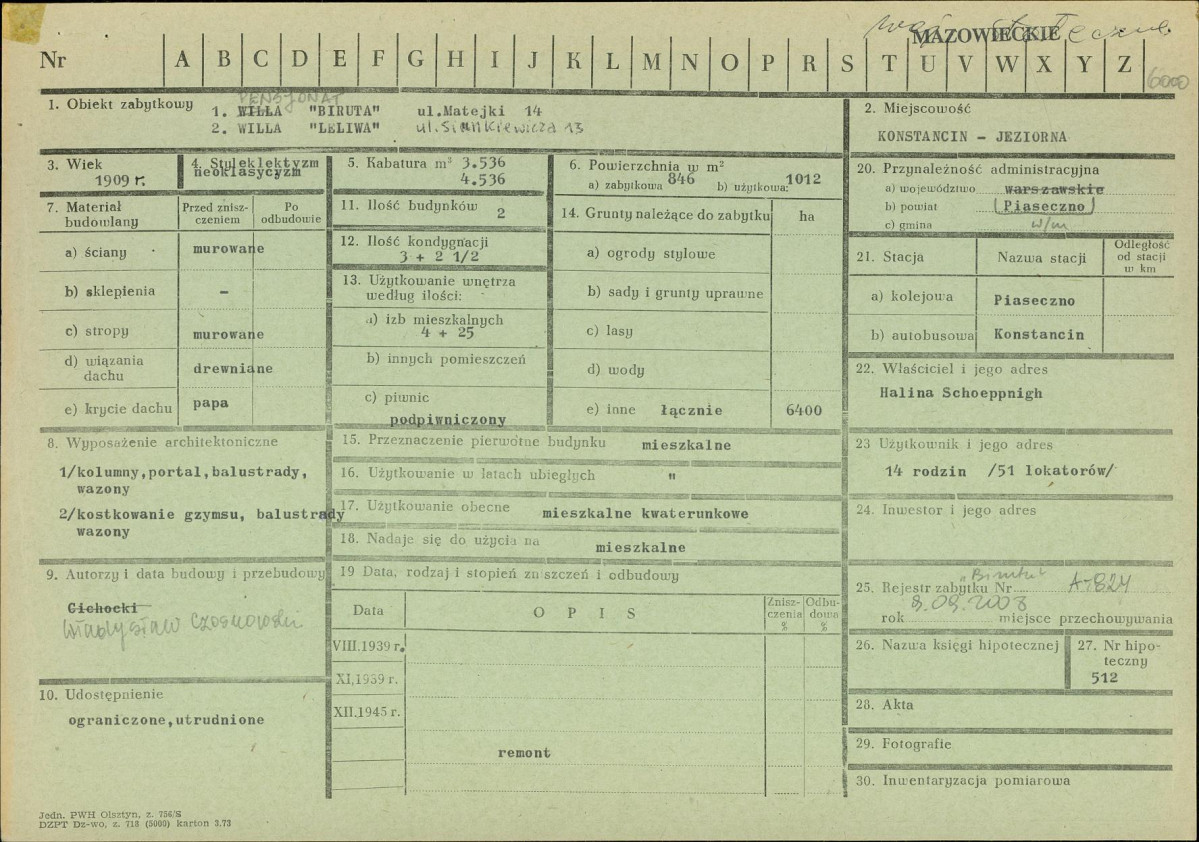 woj. stołeczne
MAZOWIECKIE
Nr A B C D E F G H I J K L M N O P R S T U V W X Y Z
6000
1. Obiekt zabytkowy
PENSJONAT
1. WILLA "BIRUTA" ul.Matejki 14
2. WILLA "LELIWA" ul. Sienkiewicza 13
2. Miejscowość
KONSTANCIN - JEZIORNA
3. Wiek
1909 r.
4. Styl eklektyzm
neoklasycyzm
5. Kabatura m³ 3.536
4.536
6. Powierzchnia w m²
a) zabytkowa 846 b) użytkowa: 1012
20. Przynależność administracyjna
a) województwo warszawskie
b) powiat (Piaseczno)
c) gmina w/m
7. Materiał budowlany
Przed zniszczeniem
Po odbudowie
a) ściany murowane
b) sklepienia -
c) stropy murowane
d) wiązania dachu drewniane
e) krycie dachu papa
11. Ilość budynków 2
12. Ilość kondygnacji
3 + 2 1/2
13. Użytkowanie wnętrza
według ilości:
a) izb mieszkalnych
4 + 25
b) innych pomieszczeń
c) piwnic
podpiwniczony
14. Grunty należące do zabytku ha
a) ogrody stylowe
b) sady i grunty uprawne
c) lasy
d) wody
e) inne łącznie 6400
21. Stacja Nazwa stacji
Odległość
od stacji
w km
a) kolejowa Piaseczno
b) autobusowa Konstancin
22. Właściciel i jego adres
Halina Schoeppnigh
8. Wyposażenie architektoniczne
1/kolumny,portal,balustrady,
wazony
2/kostkowanie gzymsu, balustrady
wazony
15. Przeznaczenie pierwotne budynku mieszkalne
16. Użytkowanie w latach ubiegłych "
17. Użytkowanie obecne mieszkalne kwaterunkowe
18. Nadaje się do użycia na mieszkalne
23 Użytkownik i jego adres
14 rodzin /51 lokatorów/
24. Inwestor i jego adres
9. Autorzy i data budowy i przebudowy
Cichocki
Władysław Czosnowski
19 Data, rodzaj i stopień zniszczeń i odbudowy
Data OPIS
Znisz-
czenia
%
Odbu-
dowa
%
VIII.1939 r.
XI,1939 r.
XII.1945 r.
remont
25. Rejestr zabytku Nr "Biruta" A-824
8.09.2008
rok miejsce przechowywania
26. Nazwa księgi hipotecznej
27. Nr hipo-
teczny
512
10. Udostępnienie
ograniczone,utrudnione
28. Akta
29. Fotografie
30. Inwentaryzacja pomiarowa
Jedn. PWH Olsztyn, z. 756/S
DZPT Dz-wo, z. 718 (5000) karton 3.73